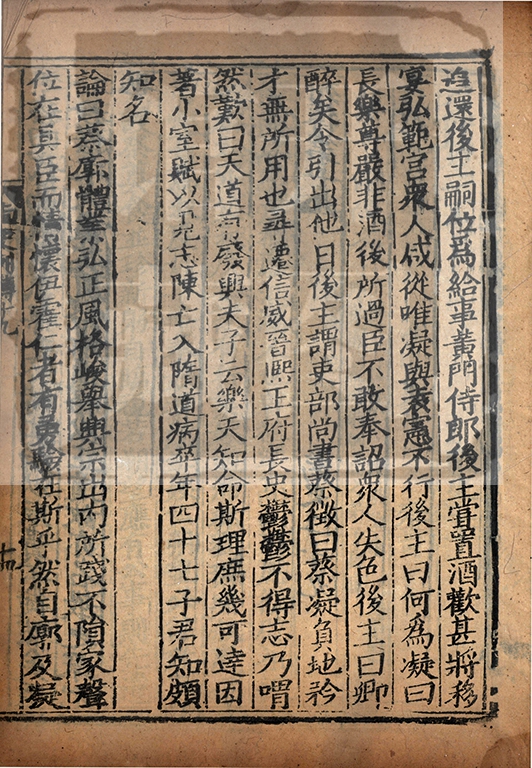 追還後主嗣位爲給事黃門侍郎後主嘗置酒歡甚將移
宴弘範宮衆人咸從唯凝與袁憲不行後主曰何爲凝曰
長樂尊嚴非酒後所過臣不敢奉詔衆人失色後主曰卿
醉矣令引出他日後主謂吏部尚書蔡徵曰蔡凝負地矜
才無所用也尋遷信威晉熙王府長史鬱鬱不得志乃喟
然歎曰天道有廢興夫子云樂天知命斯理庶幾可達因
著小室賦以見志陳亡入隋道病卒年四十七子君知頗
知名
論曰蔡廓體業弘正風格峻舉興宗出內所踐不隕家聲
位在具臣而情懷伊霍仁者有勇驗在斯乎然自廓及凝